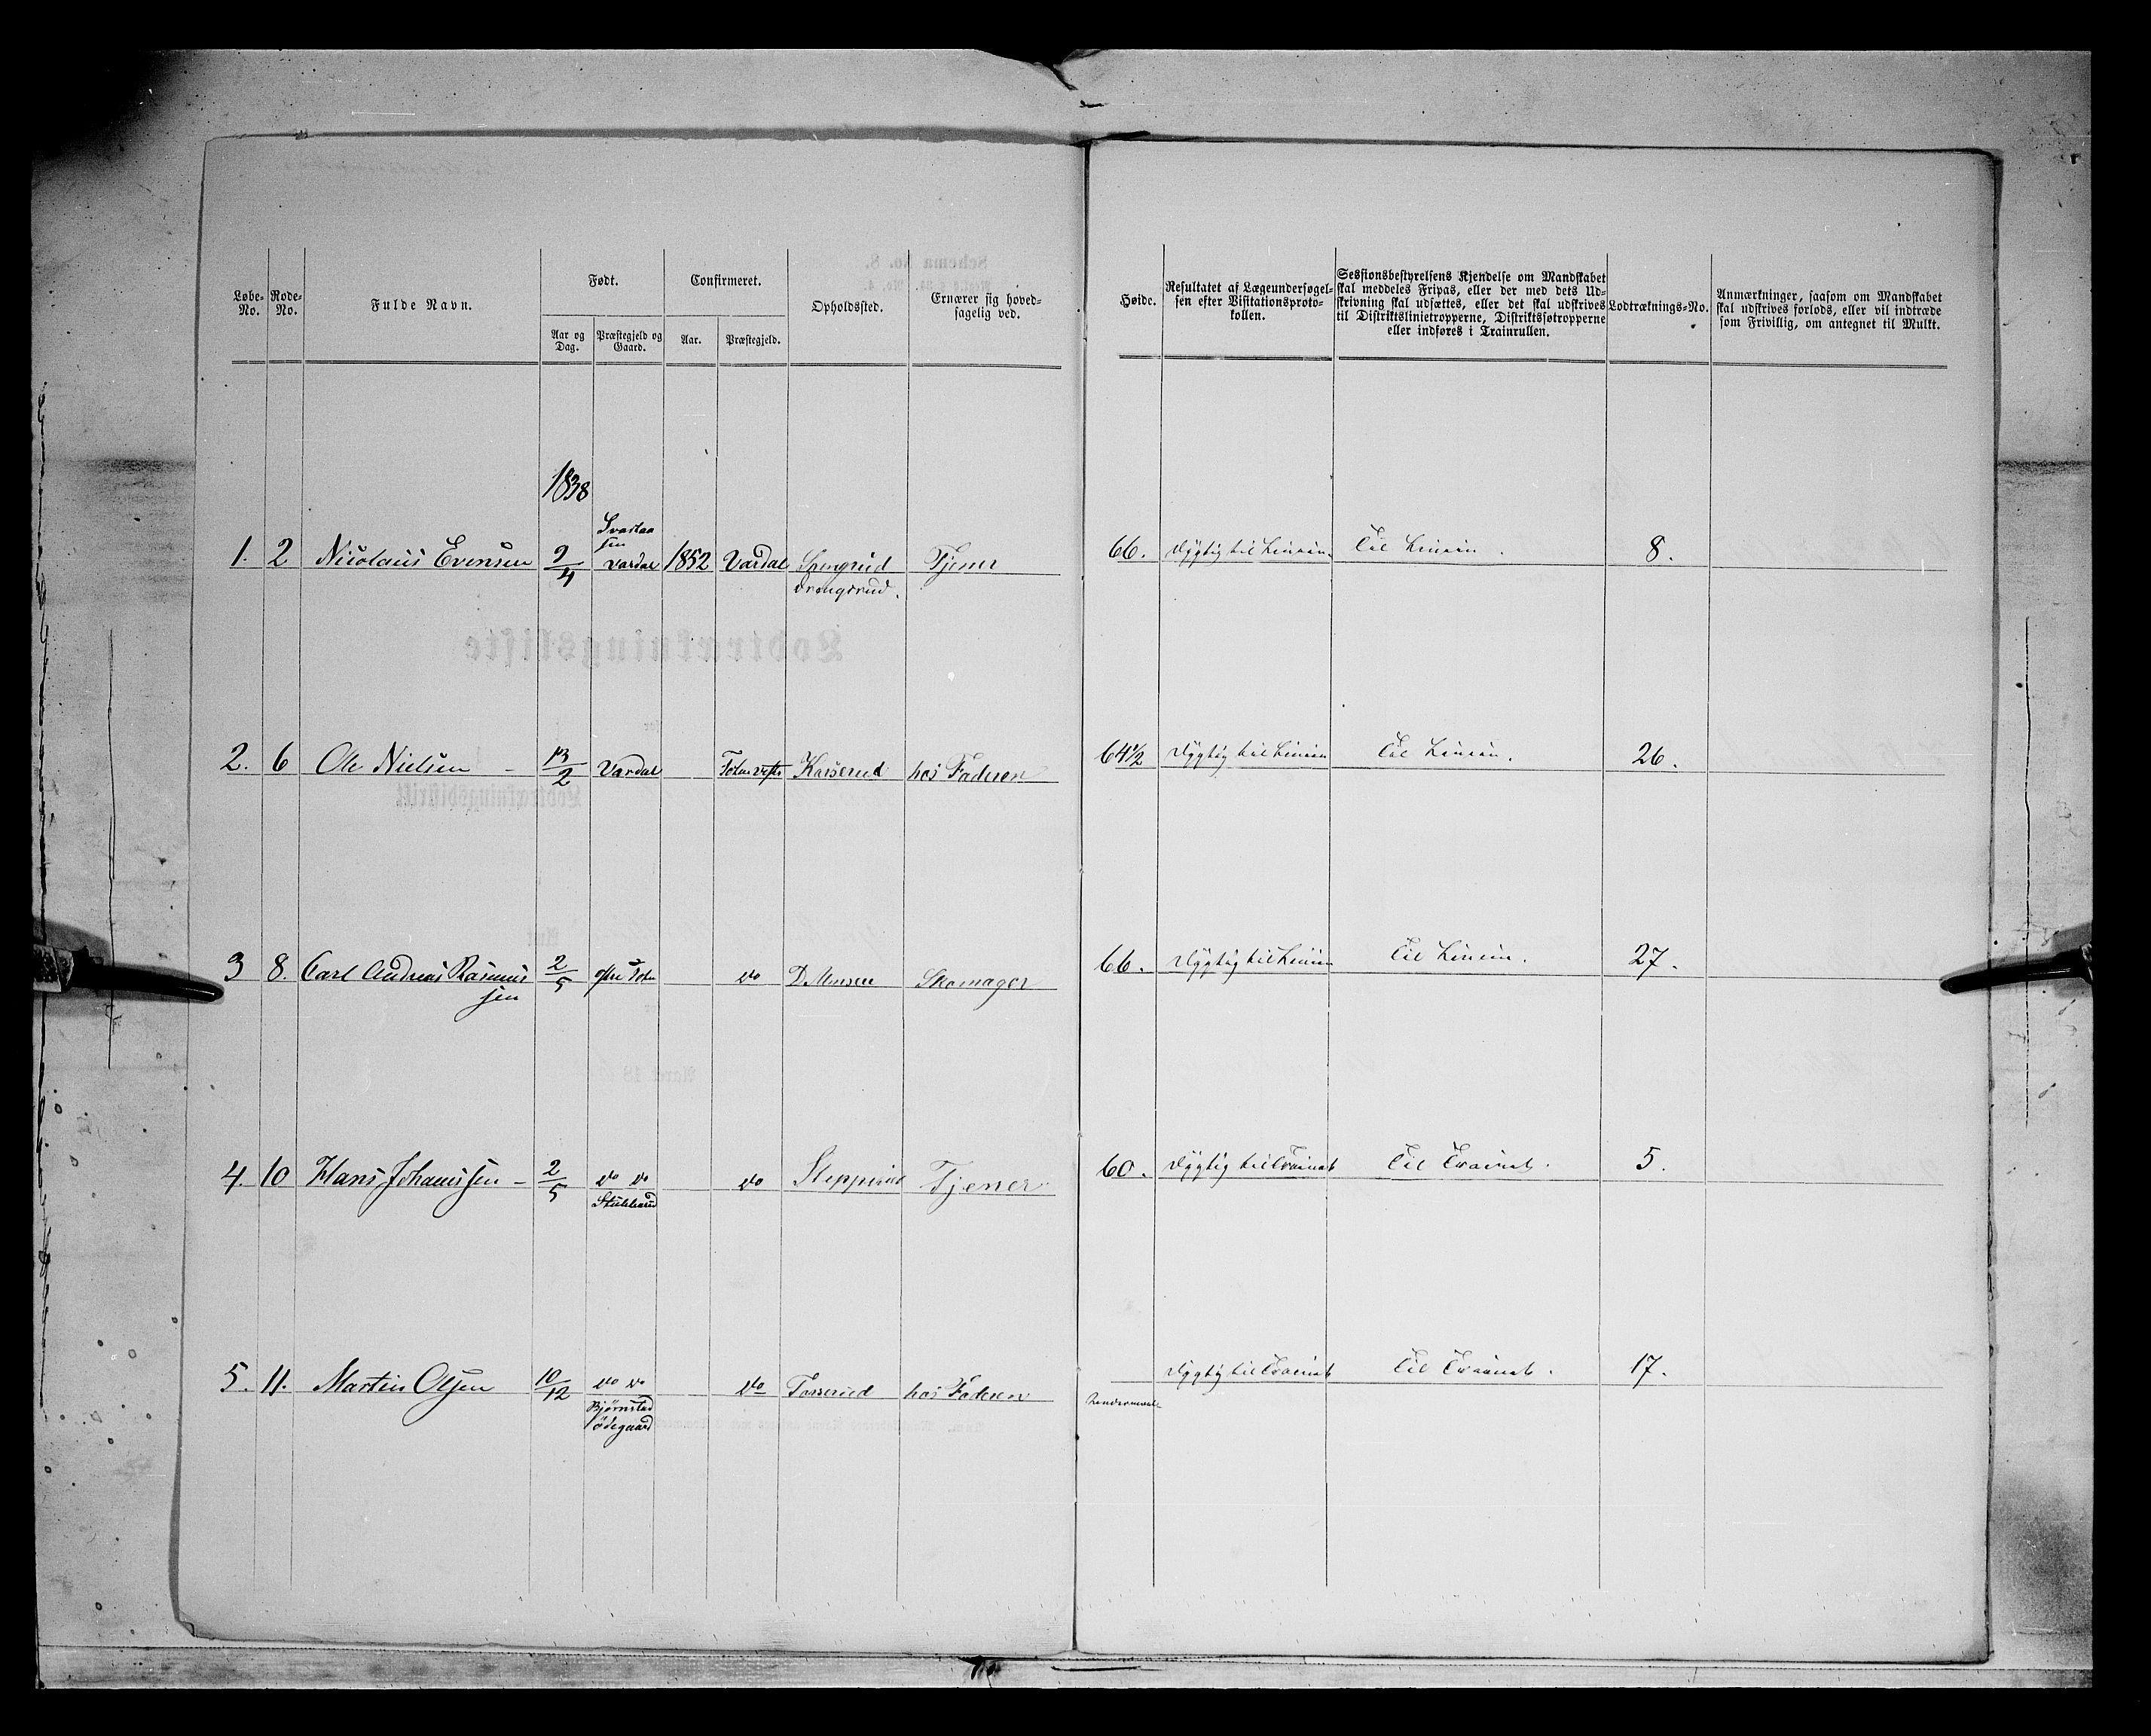 Løbe-No.
Rode-No.
Fulde Navn.
Født.
Aar og Dag.
Præstegjeld og Gaard.
Confirmeret.
Aar.
Præstegjeld.
Opholdssted.
Ernærer sig hoved-
sagelig ved.
Høide.
Resultatet af Lægeundersøgel-
sen efter Visitationsproto-
kollen.
Sessionsbestyrelsens Kjendelse om Mandskabet
skal meddeles Fripas, eller der med dets Ud-
skrivning skal udsættes, eller det skal udskrives
til Distriktslinietropperne, Distriktsføtropperne
eller indføres i Trainrullen.
Lodtræknings-No.
Anmærkninger, saasom om Mandskabet
skal udskrives forlods, eller vil indtræde
som Frivillig, om antegnet til Mulkt.
1838
1. 2 Nicolaus Evensen 9/4 Vardal 1852 Vardal Tjener 66. Dygtig til Linien Til Linien. 8.
2. 6 Ole Nielsen - 13/2 Vardal Karserud hos Faderen 64 1/2 Dygtig til Linien Til Linien. 26.
3 8. Carl Andreas Rasmus
sen 2/5 do Skomager 66. Dygtig til Linien Til Linien. 27.
4. 10 Hans Johanssen - 2/5 do do do Tjener 60. Dygtig til Trainet Til Trainet. 5.
5. 11. Martin Olsen 10/12 do do do hos Faderen Dygtig til Trainet Til Trainet. 17.
Bjørnstad
ødegaard